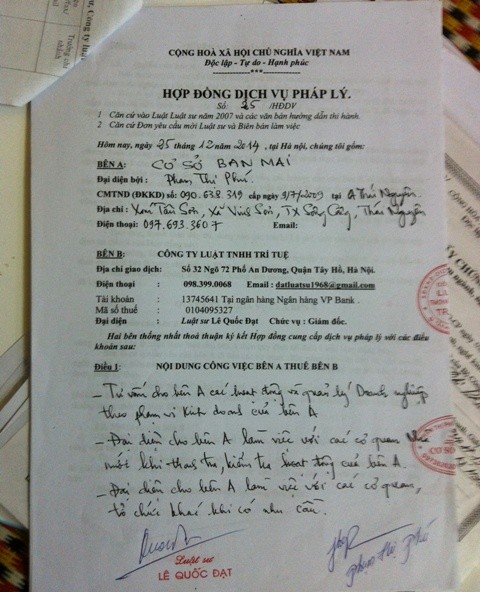 CỘNG HOÀ XÃ HỘI CHỦ NGHĨA VIỆT NAM
Độc lập - Tự do - Hạnh phúc
-------------***-------------
HỢP ĐỒNG DỊCH VỤ PHÁP LÝ.
Số: 25 /HĐDV
1 Căn cứ vào Luật Luật sư năm 2007 và các văn bản hướng dẫn thi hành.
2 Căn cứ Đơn yêu cầu mời Luật sư và Biên bản làm việc
Hôm nay, ngày 25 tháng 12 năm 2014, tại Hà nội, chúng tôi gồm:
BÊN A: CƠ SỞ BAN MAI
Đại diện bởi : Phạm Thị Phú.
CMTND (ĐKKD) số: 090.638.319 cấp ngày 9/7/2009 tại CA Thái Nguyên.
Địa chỉ : Xóm Tân Sơn, Xã Vinh Sơn, TX Sông Công, Thái Nguyên
Điện thoại: 097.693.3607 Email:
BÊN B: CÔNG TY LUẬT TNHH TRÍ TUỆ
Địa chỉ giao dịch: Số 32 Ngõ 72 Phố An Dương, Quận Tây Hồ, Hà Nội.
Điện thoại : 098.399.0068 Email : datluatsu1968@gmail.com
Tài khoản : 13745641 Tại ngân hàng Ngân hàng VP Bank .
Mã số thuế : 0104095327
Đại diện : Luật sư Lê Quốc Đạt Chức vụ : Giám đốc.
Hai bên thống nhất thoả thuận ký kết Hợp đồng cung cấp dịch vụ pháp lý với các điều
khoản sau:
Điều 1: NỘI DUNG CÔNG VIỆC BÊN A THUÊ BÊN B
- Tư vấn cho bên A các hoạt động về quản lý Doanh nghiệp
theo phạm vi Kinh doanh của bên A
- Đại diện cho bên A làm việc với các cơ quan Nhà
nước khi thanh tra, kiểm tra hoạt động của bên A.
- Đại diện cho bên A làm việc với các cơ quan,
tổ chức khác khi có nhu cầu.
Luật sư
LÊ QUỐC ĐẠT
Phạm Thị Phú